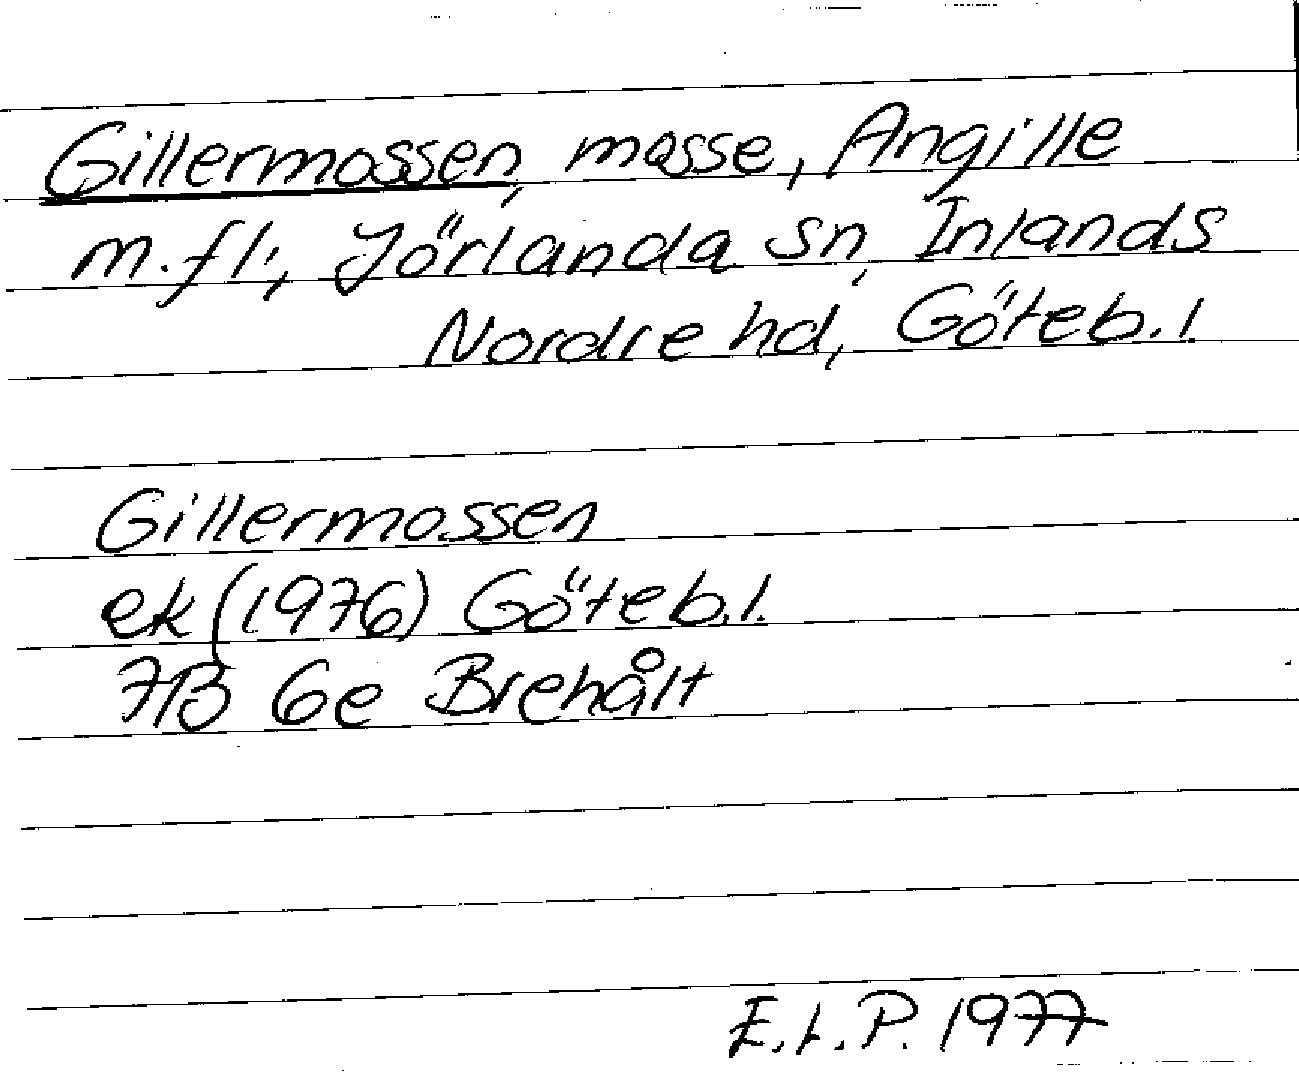 Gillermossen, mosse, Angille
m.fl., Jörlanda sn, Inlands
Nordre hd, Göteb. l
Gillermossen
ek (1976) Göteb. l.
7B 6e Brehålt
E.L.P. 1977